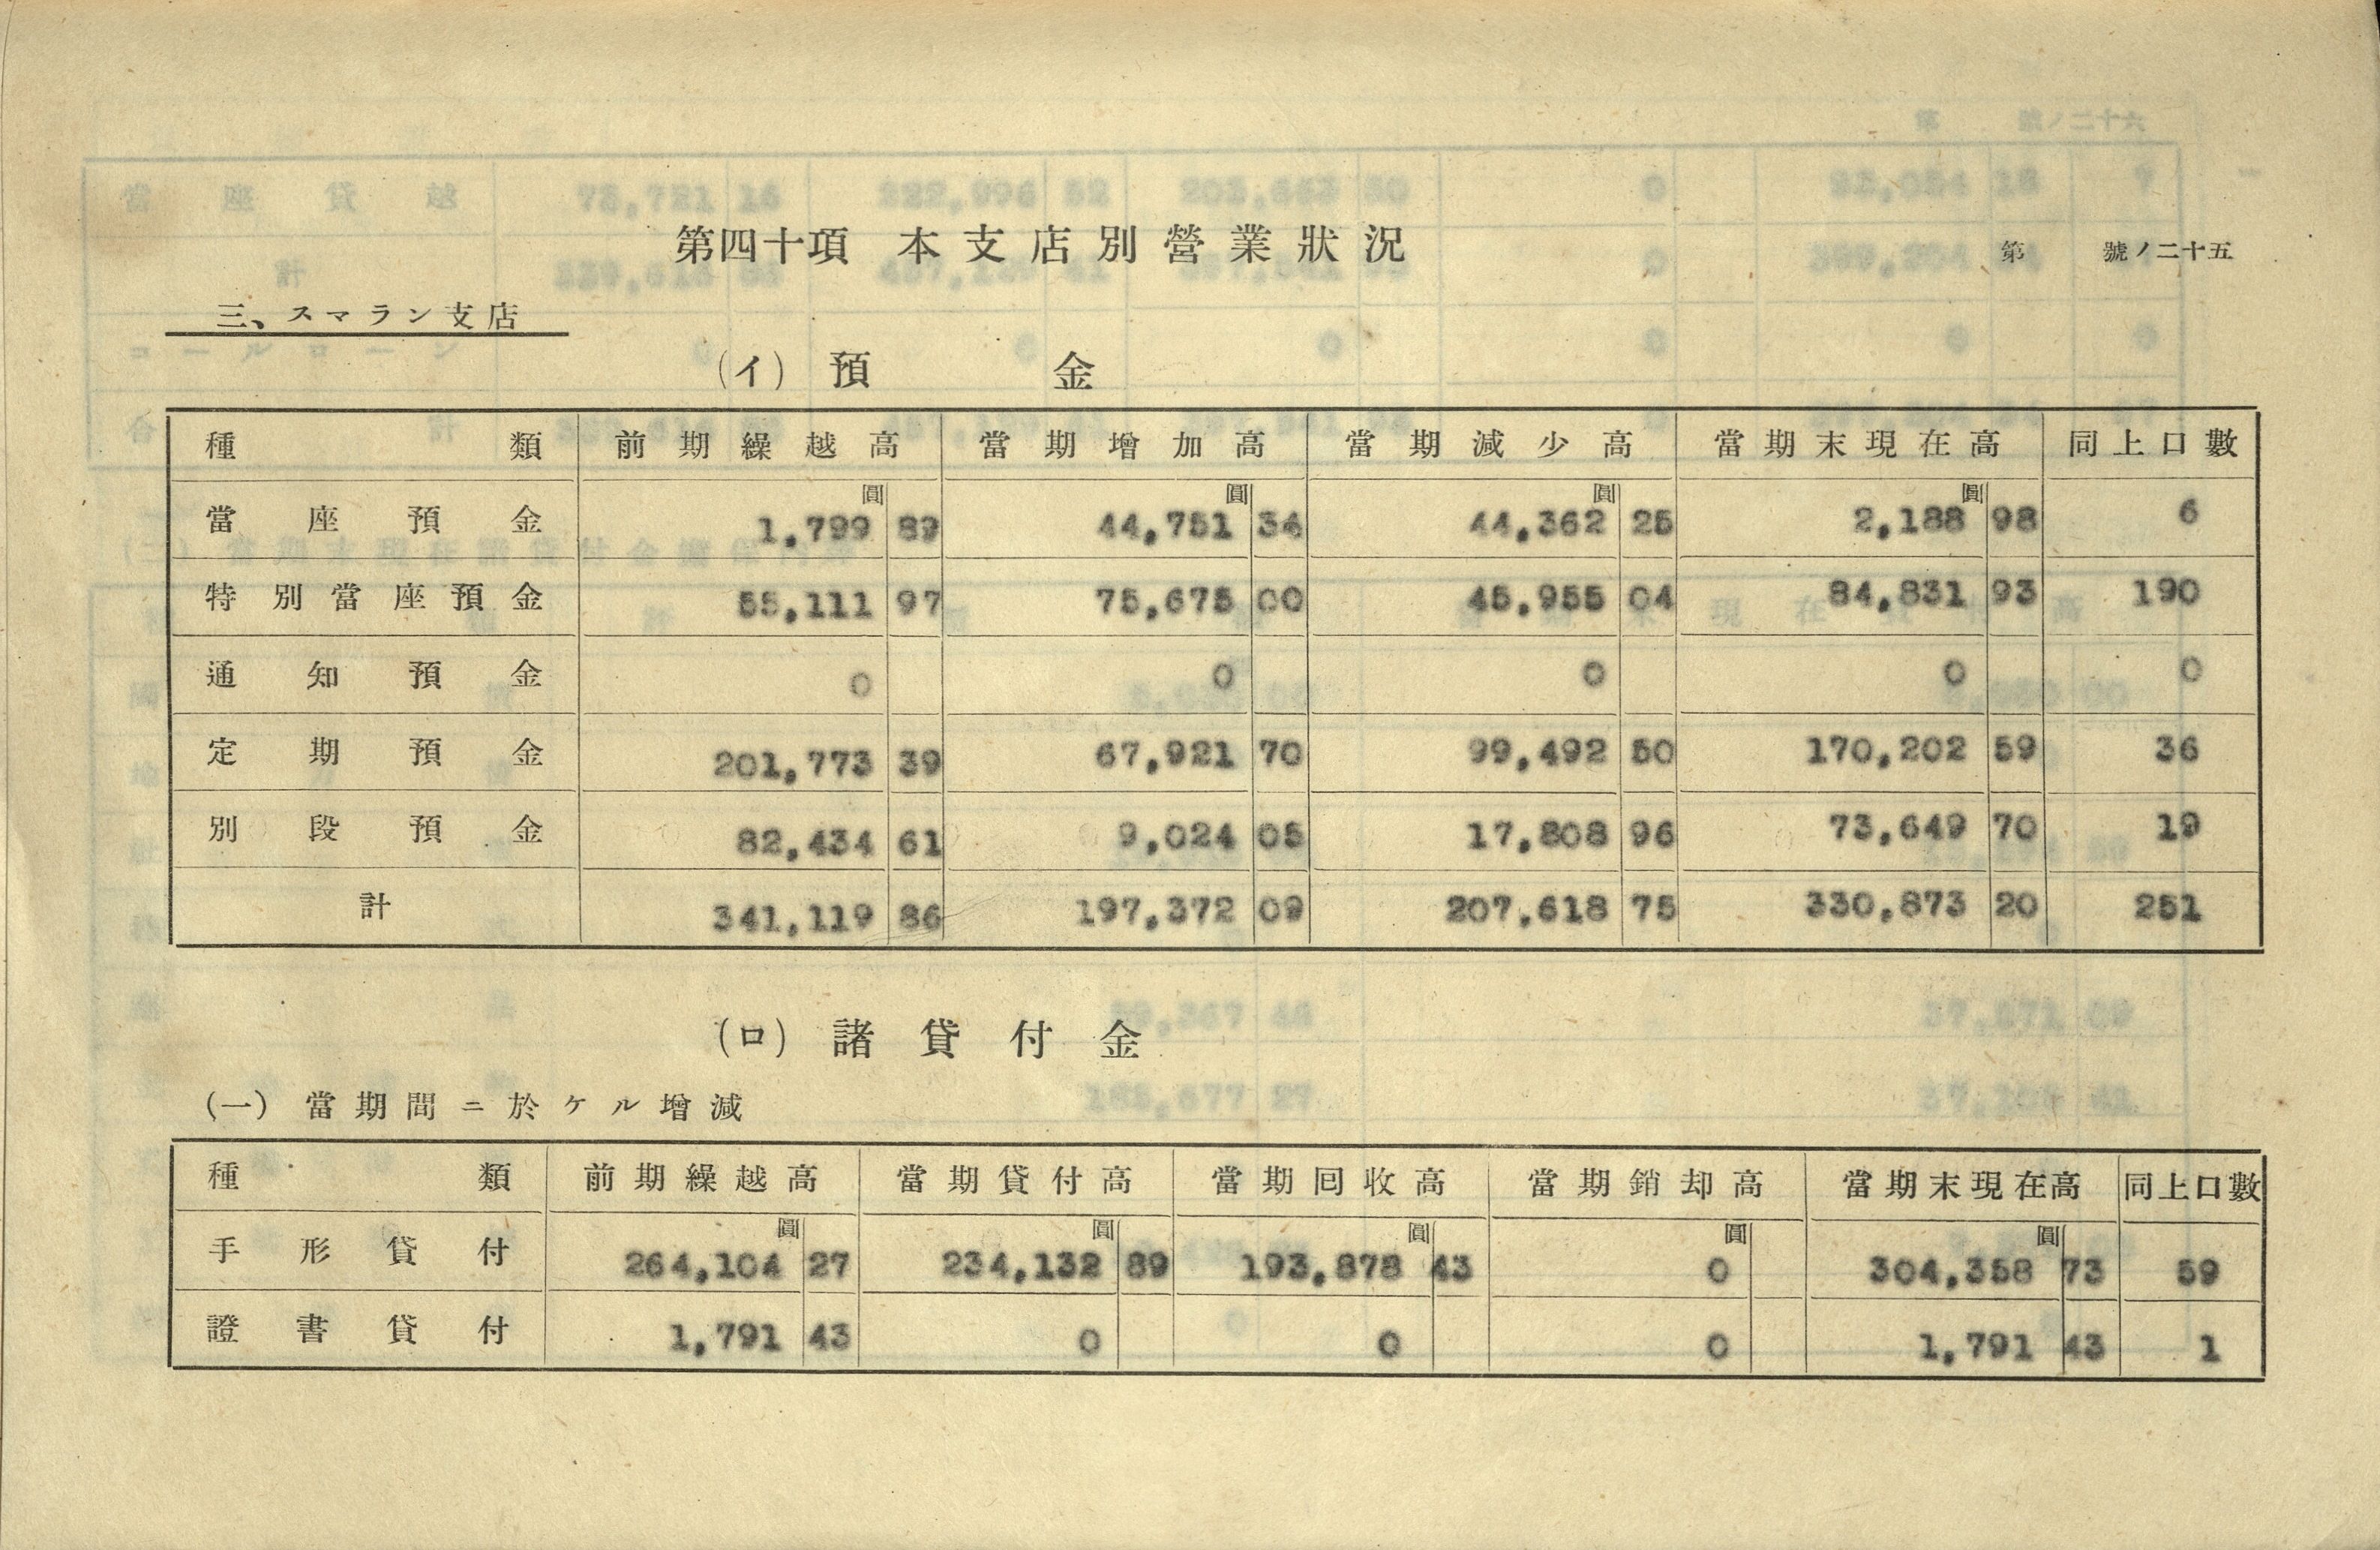 第四十項 本支店別營業狀況
第 號ノ二十五
三、スマラン支店
(イ) 預 金
種類 前期繰越高 當期增加高 當期減少高 當期末現在高 同上口數
圓 圓 圓 圓
當座預金 1,799 89 44,751 34 44,362 25 2,188 98 6
特別當座預金 55,111 97 75,675 00 45,955 04 84,831 93 190
通知預金 0 0 0 0 0
定期預金 201,773 39 67,921 70 99,492 50 170,202 59 36
別段預金 82,434 61 9,024 05 17,808 96 73,649 70 19
計 341,119 86 197,372 09 207,618 75 330,873 20 251
(ロ) 諸貸付金
(一) 當期間ニ於ケル增減
種類 前期繰越高 當期貸付高 當期囘收高 當期銷却高 當期末現在高 同上口數
圓 圓 圓 圓 圓
手形貸付 264,104 27 234,132 89 193,878 43 0 304,358 73 59
證書貸付 1,791 43 0 0 0 1,791 43 1